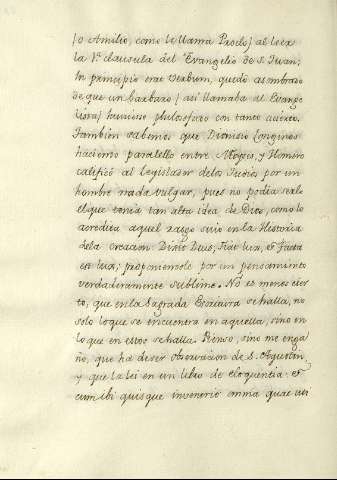 (o Amilio, como le llama Proclo) al leer
la 1ª clausula del Evangelio de S. Juan;
In principio erat Verbum, quedo asombrado
de que un barbaro (asi llamaba al Evange
lista) huviese philosofado con tanto acierto.
Tambien sabemos que Dionisio Longinos
haciendo paralello entre Moyses, y Homero
calificó al Legislador delos Judios por un
hombre nada vulgar, pues no podia serlo
elque tenia tan alta idea de Dios, como lo
acredita aquel rasgo suio en la Historia
dela creacion Dixit Deus, Fiat lux, et facta
est lux; proponiendole por un pensamiento
verdaderamente sublime. No es menos cier
to, que en la Sagrada Escritura se halla, no
solo loque se encuentra en aquella, sino en
lo que en estos se halla. Pienso, sino me enga
ño, que ha deser observacion de S. Agustin,
y que la lei en un libro de eloquencia. et
cum ibi quisque invenerit omnia quae uti